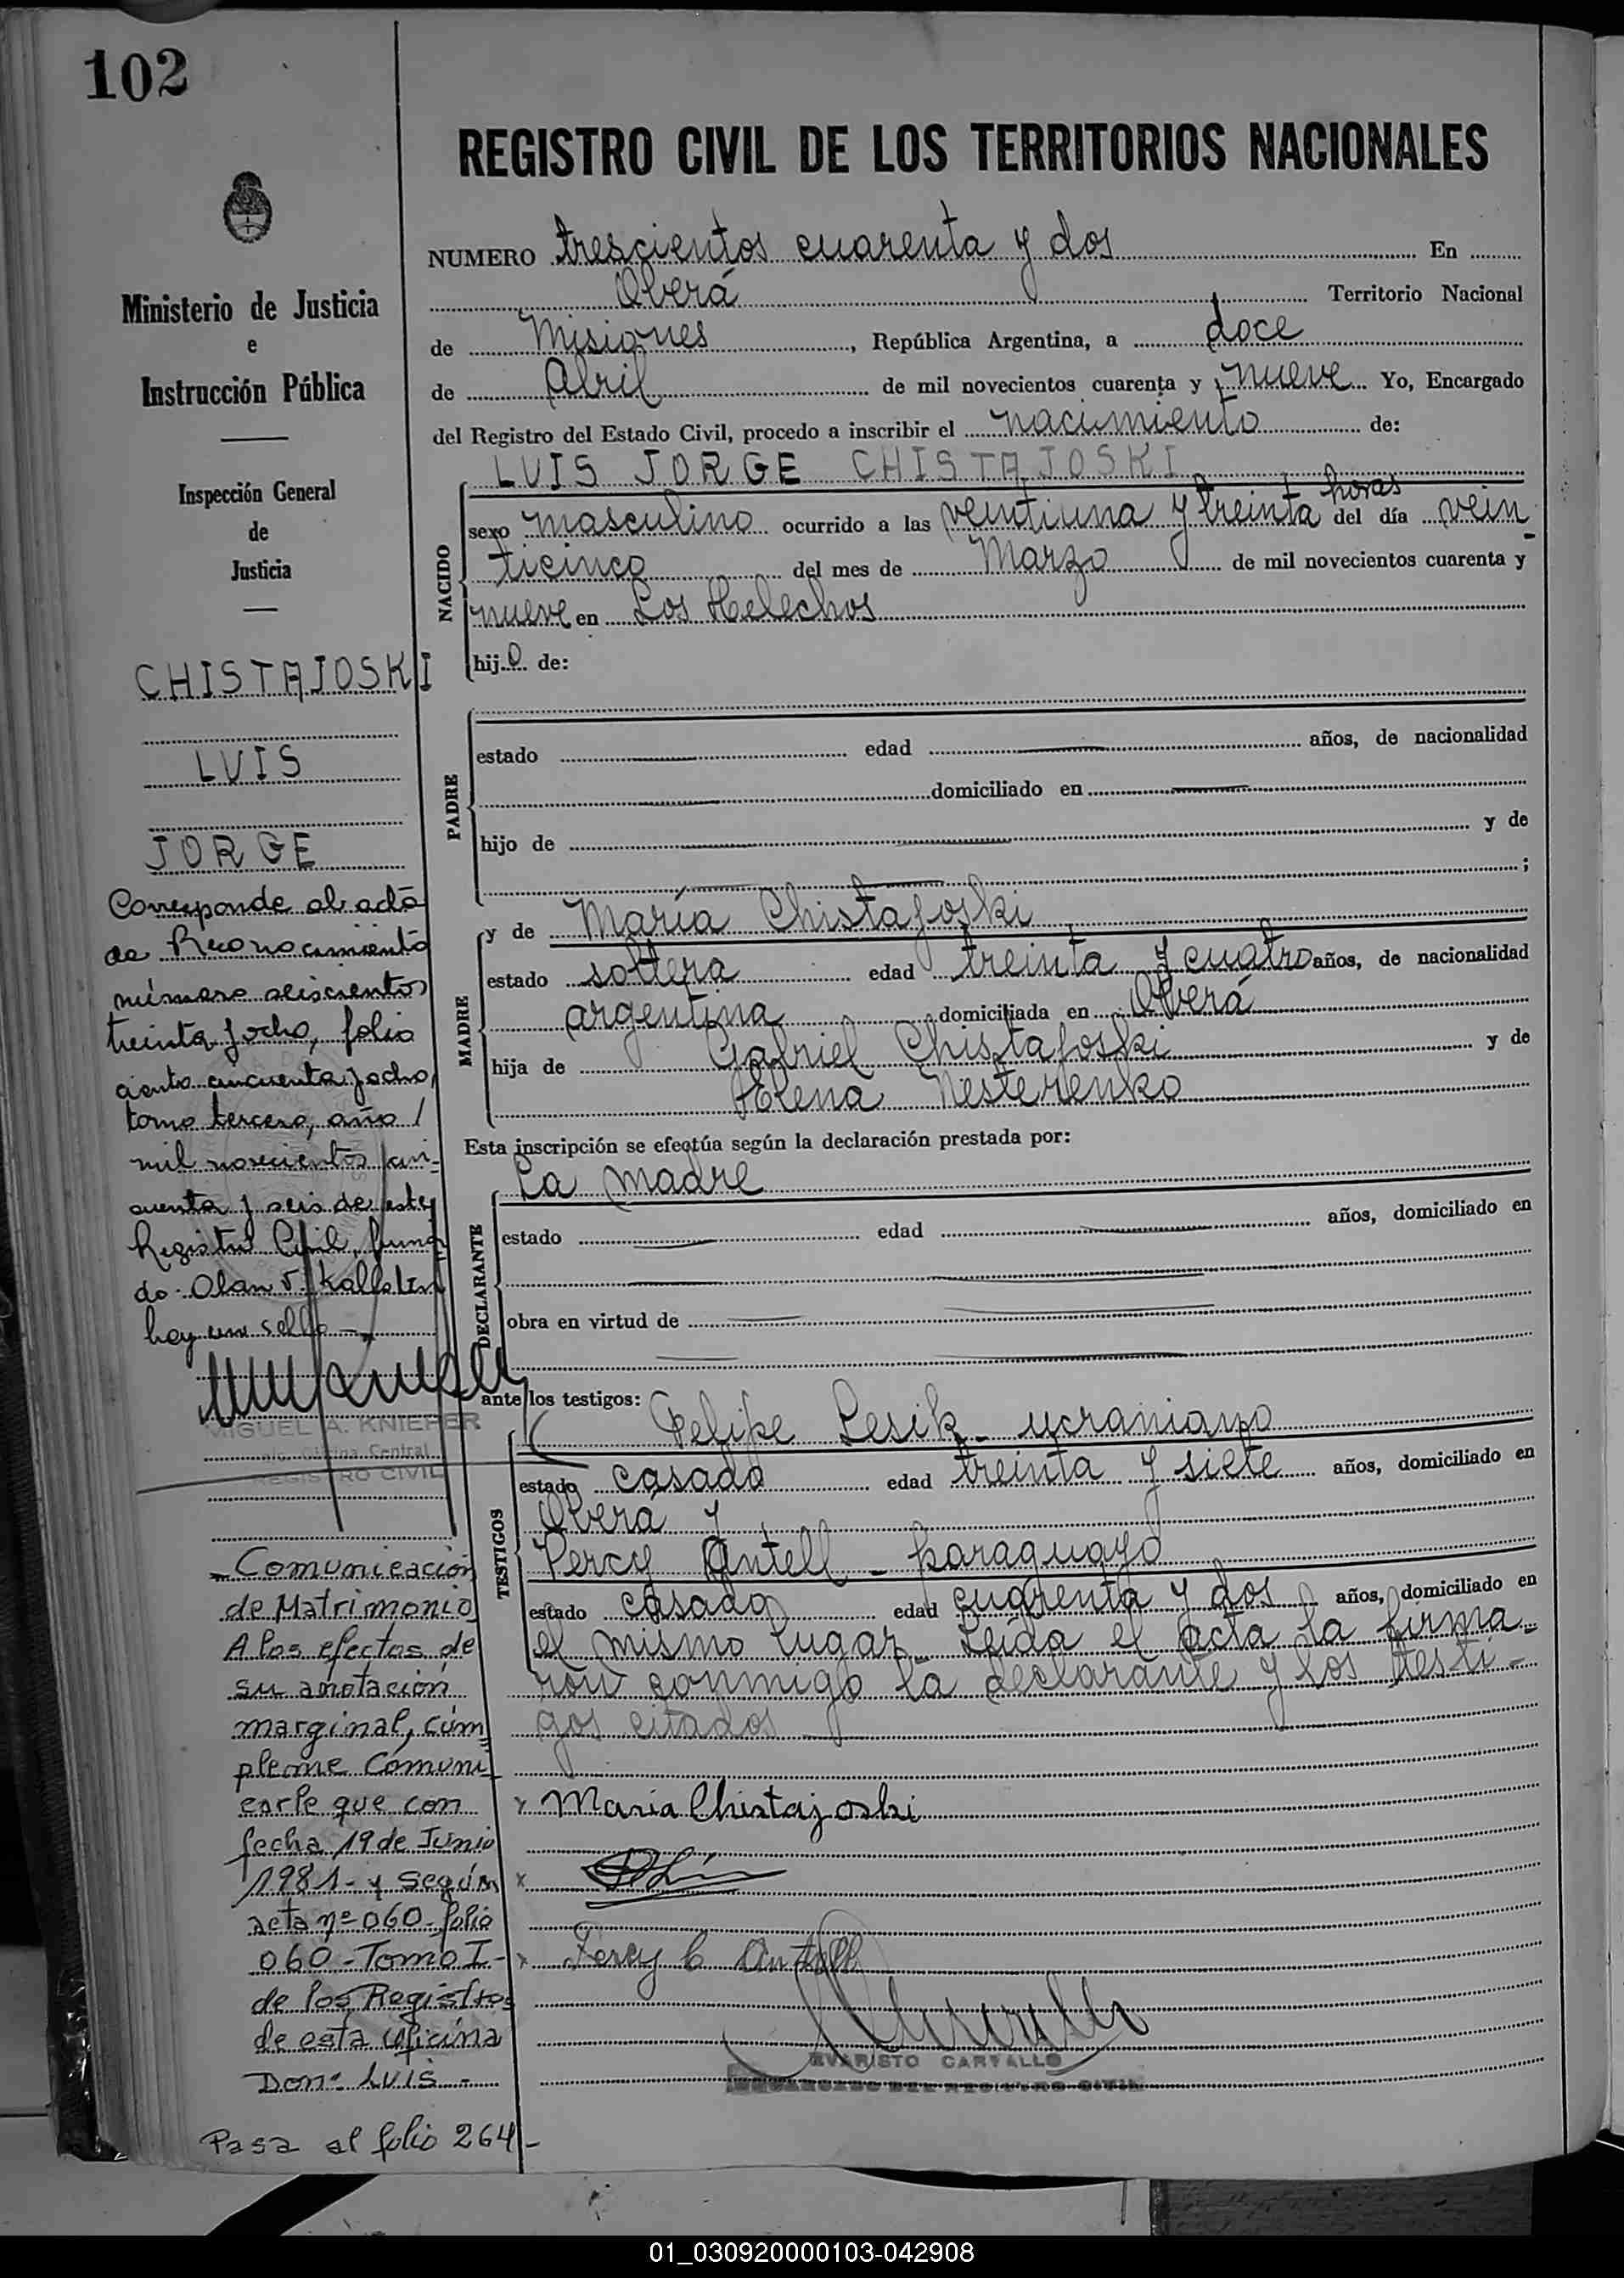 102
REGISTRO CIVIL DE LOS TERRITORIOS NACIONALES
Ministerio de Justicia
e
Instrucción Pública
Inspección General
de
Justicia
CHISTAJOSKI
LUIS
JORGE
Corresponde al acta
de Reconocimiento
número seiscientos
treinta y ocho, folio
ciento cincuenta y ocho,
tomo tercero, año /
mil novecientos cin-
cuenta y seis de este
Registro Civil, firma
do: Olan V. Kallsten
hay un sello -
MIGUEL A. KNIEPER
Oficina Central
REGISTRO CIVIL
- Comunicación
de Matrimonio
A los efectos de
su anotación
marginal, cúm
pleme Comuni-
carle que con
fecha 19 de Junio
1981 - y Según
acta nº 060 - folio
060 - Tomo I -
de los Registros
de esta oficina
Don: Luis -
Pasa al folio 264 -
NUMERO trescientos cuarenta y dos En
Oberá Territorio Nacional
de Misiones, República Argentina, a doce
de Abril de mil novecientos cuarenta y nueve Yo, Encargado
del Registro del Estado Civil, procedo a inscribir el nacimiento de:
LUIS JORGE CHISTAJOSKI
NACIDO
sexo masculino ocurrido a las veintiuna y treinta horas del día vein-
ticinco del mes de Marzo de mil novecientos cuarenta y
nueve en Los Helechos
hijo de:
PADRE
estado edad años, de nacionalidad
domiciliado en
hijo de y de
;
MADRE
y de María Chistajoski
estado soltera edad treinta y cuatro años, de nacionalidad
argentina domiciliada en Oberá
hija de Gabriel Chistajoski y de
Elena Nesterenko
Esta inscripción se efectúa según la declaración prestada por:
DECLARANTE
La madre
estado edad años, domiciliado en
obra en virtud de
ante los testigos:
TESTIGOS
Felipe Lesik - ucraniano
estado casado edad treinta y siete años, domiciliado en
Oberá y
Percy Antell - paraguayo
estado casado edad cuarenta y dos años, domiciliado en
el mismo lugar - Leída el acta la firma-
ron conmigo la declarante y los testi-
gos citados
x Maria Chistajoski
x
x Percy C Antell
EVARISTO CARVALLO
ENCARGADO DEL REGISTRO CIVIL
01_030920000103-042908